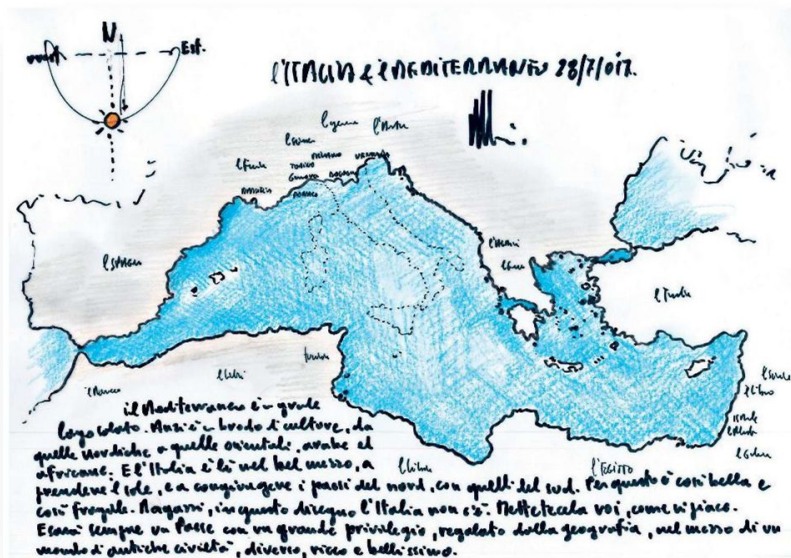 N
ovest
Est.
l'ITALIA e il MEDITERRANEO 28/7/017.
l'Austria
la Svizzera
la Francia
MILANO
VENEZIA
TORINO
GENOVA
BOLOGNA
MARSIGLIA
MONACO
la SPAGNA
l'Albania
la Grecia
la Turchia
Tunisia
il Marocco
Israele
la Libia
l'EGITTO
il Mediterraneo è un grande
lago salato. Anzi è un brodo di culture, da
quelle nordiche a quelle orientali, arabe ed
africane. E l'Italia è lì nel bel mezzo, a
prendere il sole, e a congiungere i paesi del nord, con quelli del sud. Per questo è così bella e
così fragile. Ragazzi, in questo disegno l'Italia non c'è. Mettetecela voi, come vi piace.
E sarà sempre un Paese con un grande privilegio, regalato dalla geografia, nel mezzo di un
mondo di antiche civiltà, diverso, ricco e bellissimo.